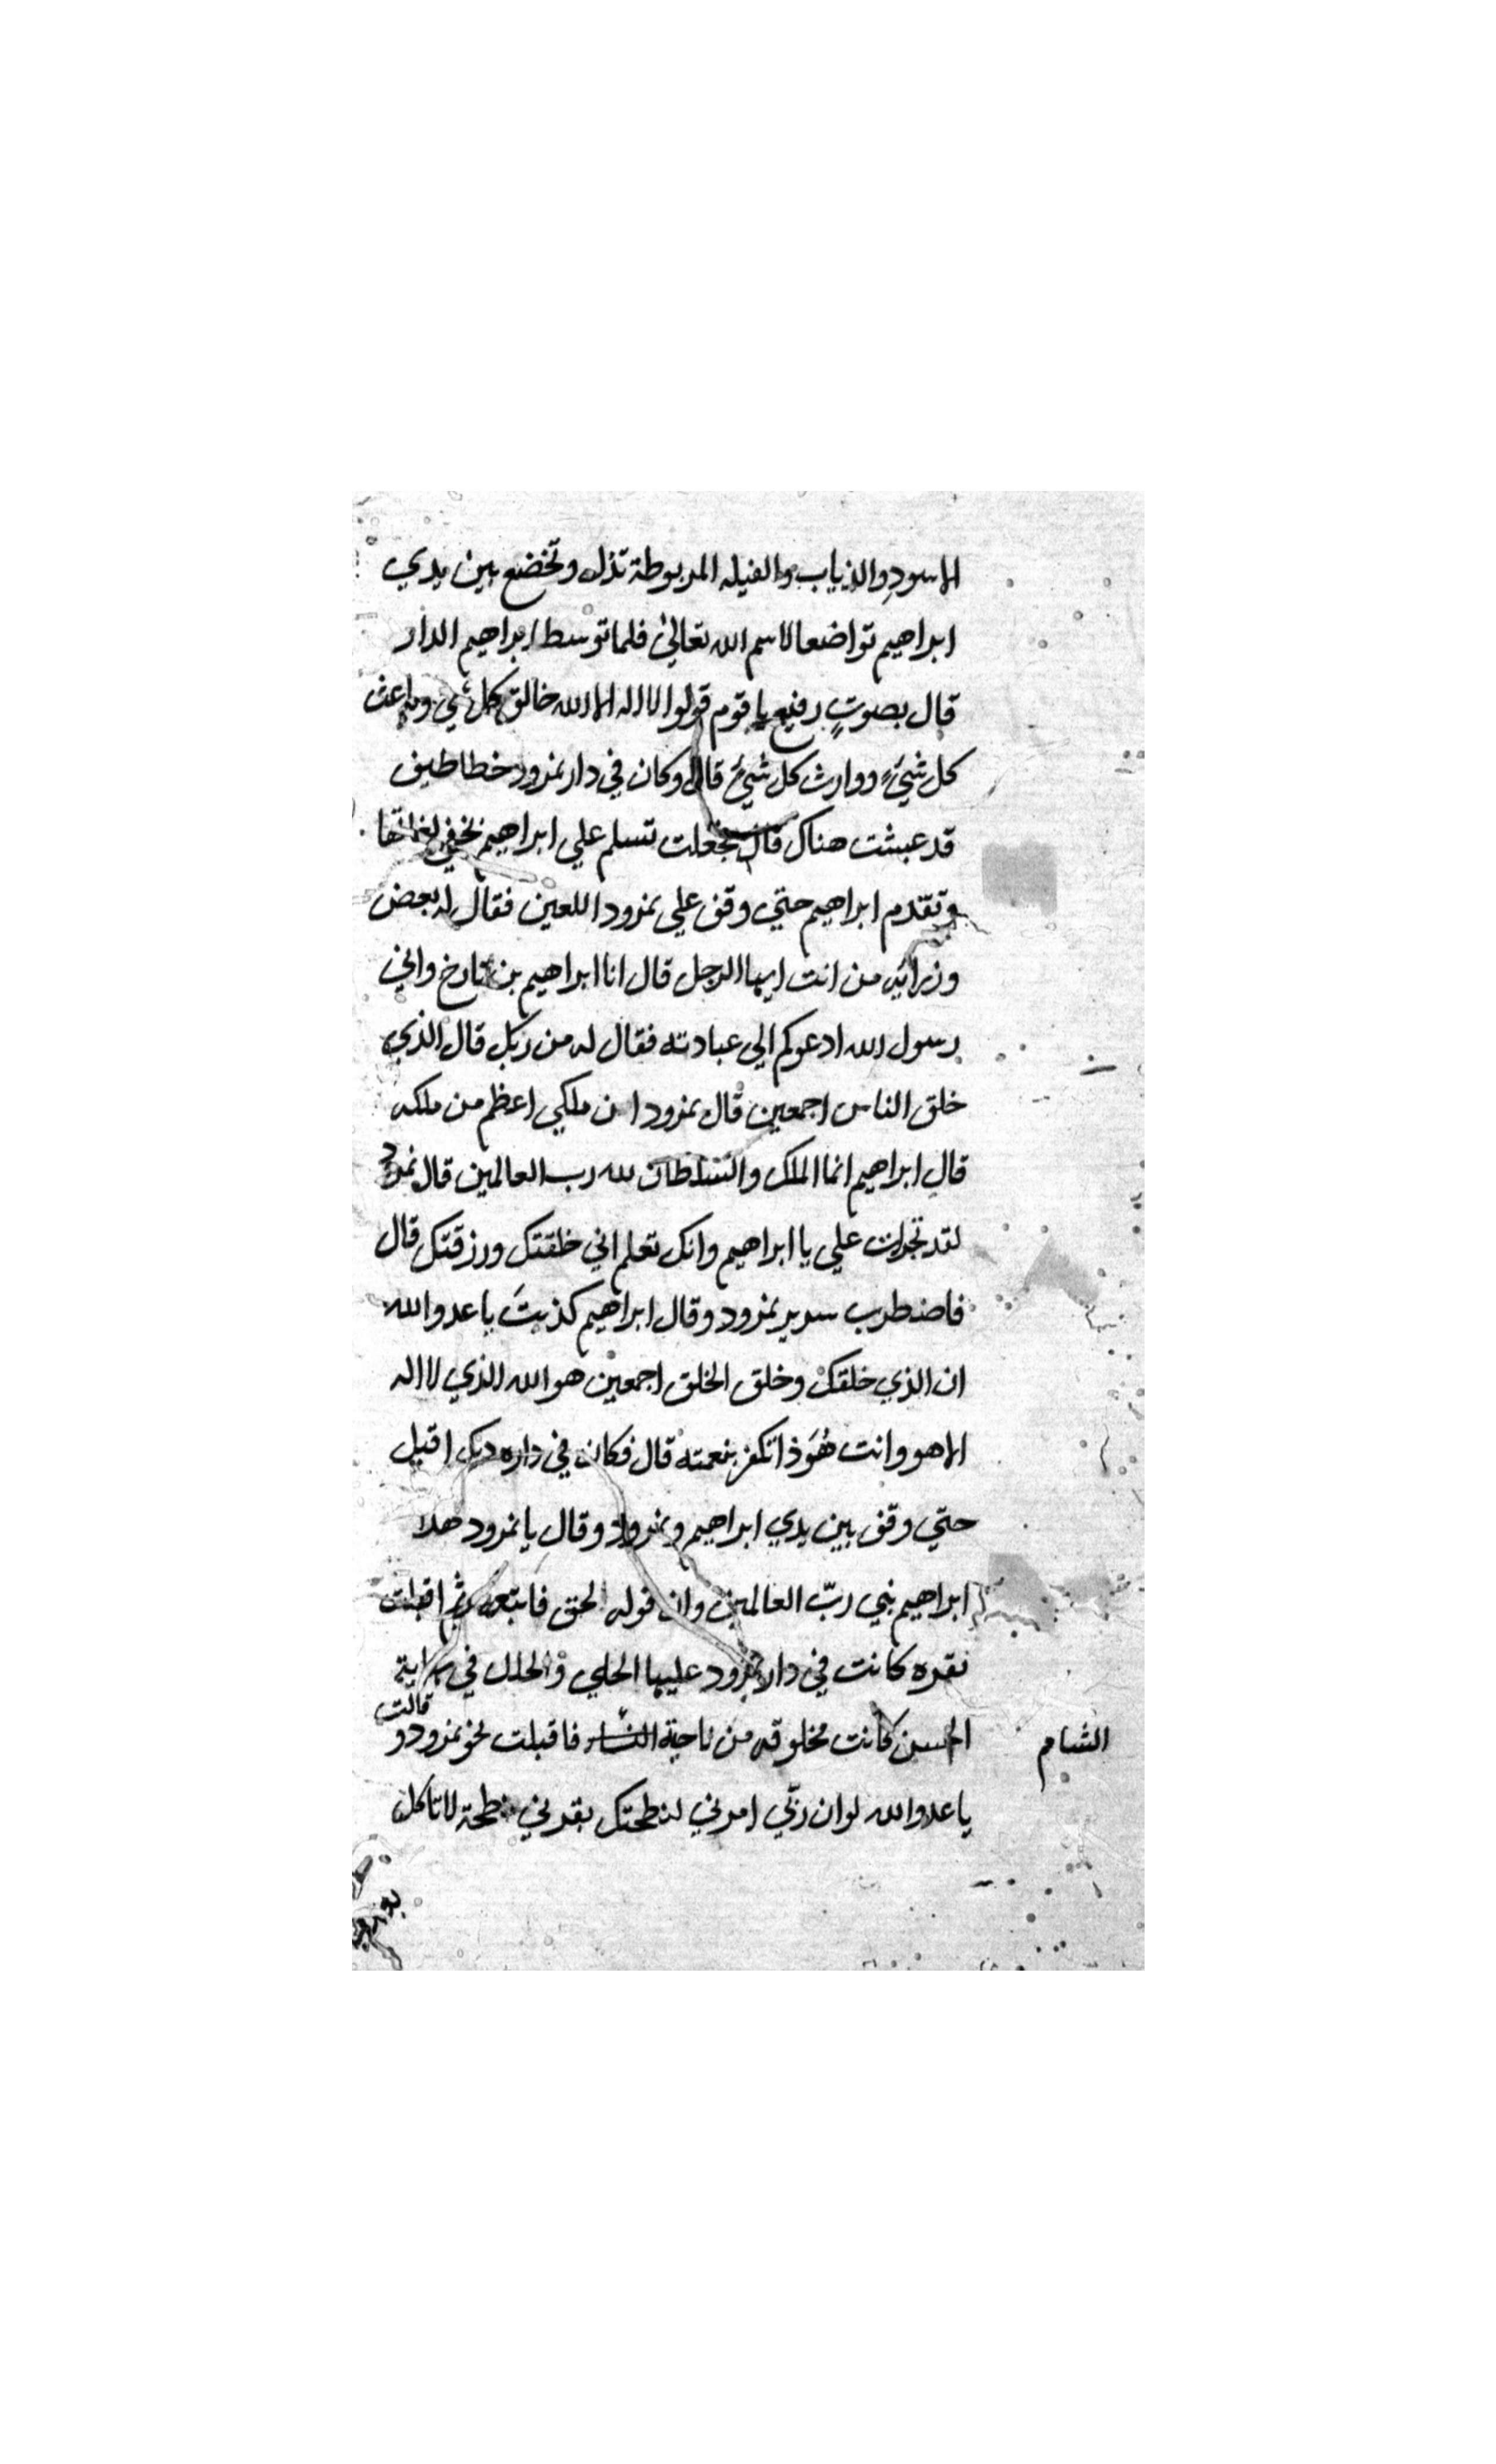 الاسود والذياب والفيله المربوطة تذل وتخضع بين يدي
ابراهيم تواضعا لاسم الله تعالى فلما توسط ابراهيم الدار
قال بصوتٍ رفيع يا قوم قولوا لا اله الا الله خالق كل شي وباعث
كل شيءٍ ووارث كل شيءٍ قال وكان في دار نمرود خطاطيف
قد عبشت هناك قال فجعلت تسلم علي ابراهيم بخفي لغاتها
وتقدم ابراهيم حتي وقف علي نمرود اللعين فقال له بعض
وزرائه من انت ايها الرجل قال انا ابراهيم بن تارخ واني
رسول الله ادعوكم الي عبادته فقال له من ربك قال الذي
خلق الناس اجمعين قال نمرود ان ملكي اعظم من ملكه
قال ابراهيم انما الملك والسلطان لله رب العالمين قال نمرود
لقد تجرات علي يا ابراهيم وانك تعلم اني خلقتك ورزقتك قال
فاضطرب سرير نمرود وقال ابراهيم كذبتَ يا عدو الله
ان الذي خلقك وخلق الخلق اجمعين هو الله الذي لا اله
الا هو وانت هُوَذا تكفر بنعمته قال فكان في داره ديك اقبل
حتي وقف بين يدي ابراهيم ونمرود وقال يا نمرود هذا
ابراهيم نبي ربّ العالمين وان قوله الحق فاتبعه ثم اقبلت
بقره كانت في دار نمرود عليها الحلي والحلل في
الحسن كانت مخلوقه من ناحية فاقبلت نحو نمرود وقالت
الشام
يا عدو الله لو ان ربّي امرني لنطحتك بقرني نطحة لا تاكل